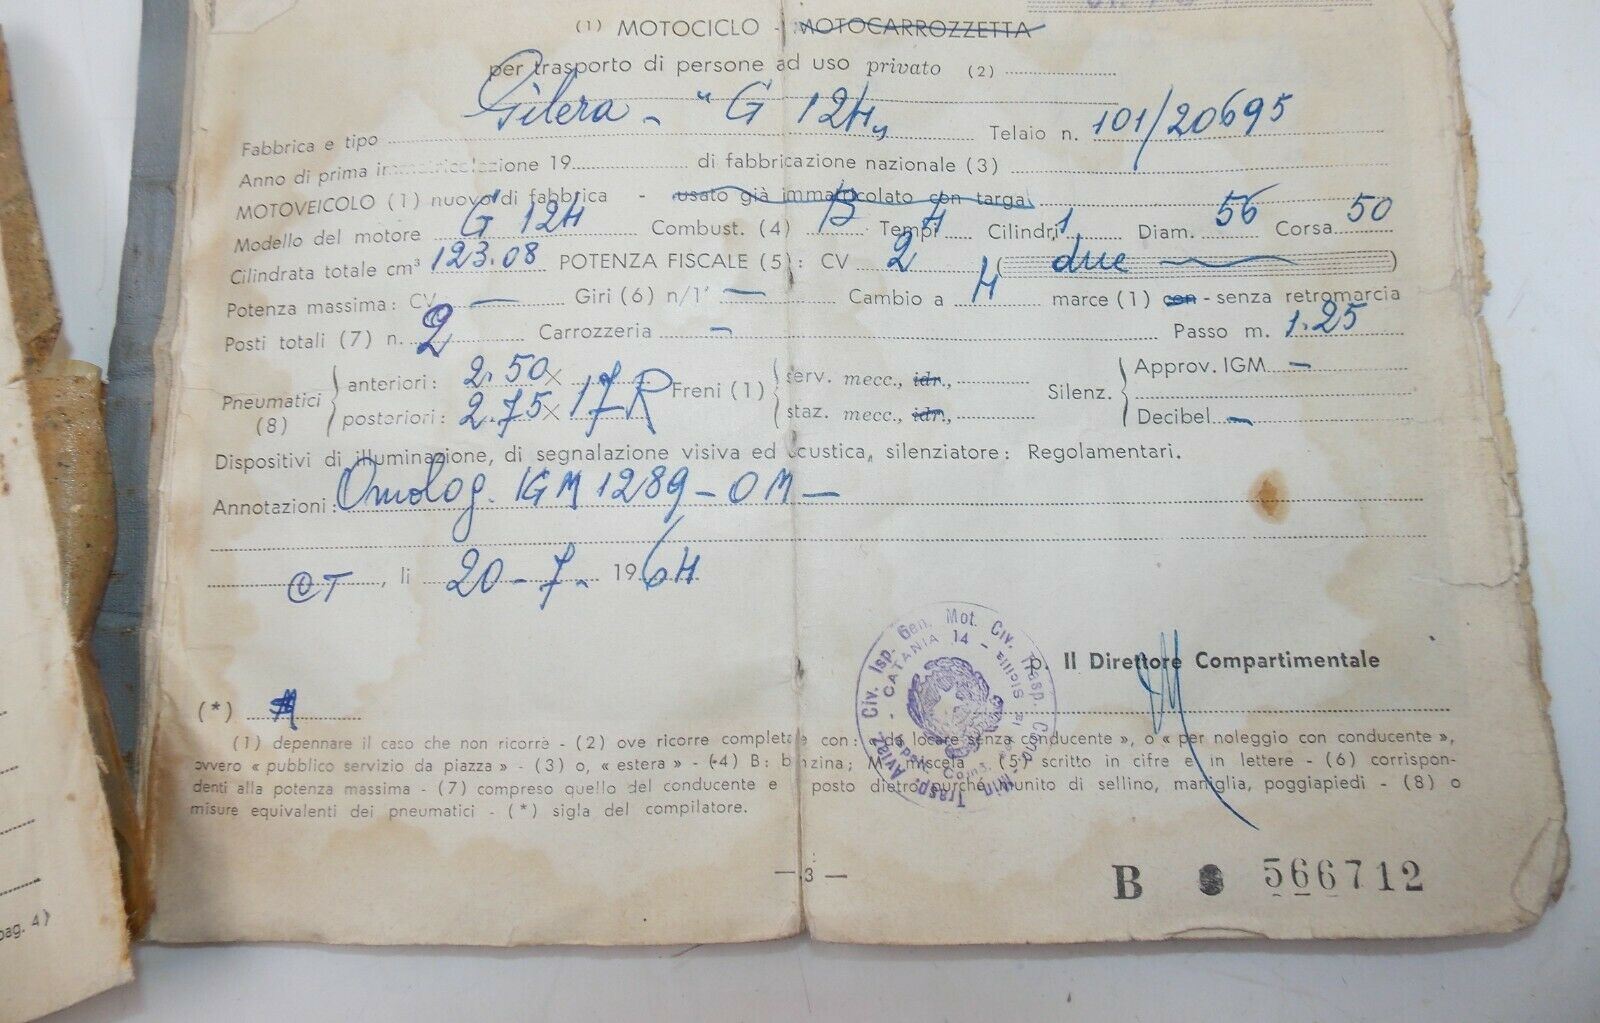 (1) MOTOCICLO - MOTOCARROZZETTA
per trasporto di persone ad uso privato (2)
Fabbrica e tipo Gilera - " G 124 " Telaio n. 101/20695
Anno di prima immatricolazione 19 di fabbricazione nazionale (3)
MOTOVEICOLO (1) nuovo di fabbrica - usato già immatricolato con targa
Modello del motore G 124 Combust. (4) B Tempi 4 Cilindri 1 Diam. 56 Corsa 50
Cilindrata totale cm³ 123.08 POTENZA FISCALE (5): CV 2 ( due )
Potenza massima: CV — Giri (6) n/1' — Cambio a 4 marce (1) con - senza retromarcia
Posti totali (7) n. 2 Carrozzeria — Passo m. 1.25
Pneumatici (8) anteriori: 2.50 x 17 R Freni (1) serv. mecc., idr., Silenz. Approv. IGM —
posteriori: 2.75 x staz. mecc., idr., Decibel —
Dispositivi di illuminazione, di segnalazione visiva ed acustica, silenziatore: Regolamentari.
Annotazioni: Omolog. IGM 1289 - OM —
CT, li 20 - 7 - 1964
p. Il Direttore Compartimentale
Civ. Isp. Gen. Mot. Civ. Trasp. Conc. Min. Trasp. Aviaz.
CATANIA 14 - Sicilia
(*)
(1) depennare il caso che non ricorre - (2) ove ricorre completare con: « da locare senza conducente », o « per noleggio con conducente »,
ovvero « pubblico servizio da piazza » - (3) o, « estera » - (4) B: benzina; M: miscela - (5) scritto in cifre e in lettere - (6) corrispon-
denti alla potenza massima - (7) compreso quello del conducente e posto dietro purché munito di sellino, maniglia, poggiapiedi - (8) o
misure equivalenti dei pneumatici - (*) sigla del compilatore.
— 3 —
B 566712
pag. 4)